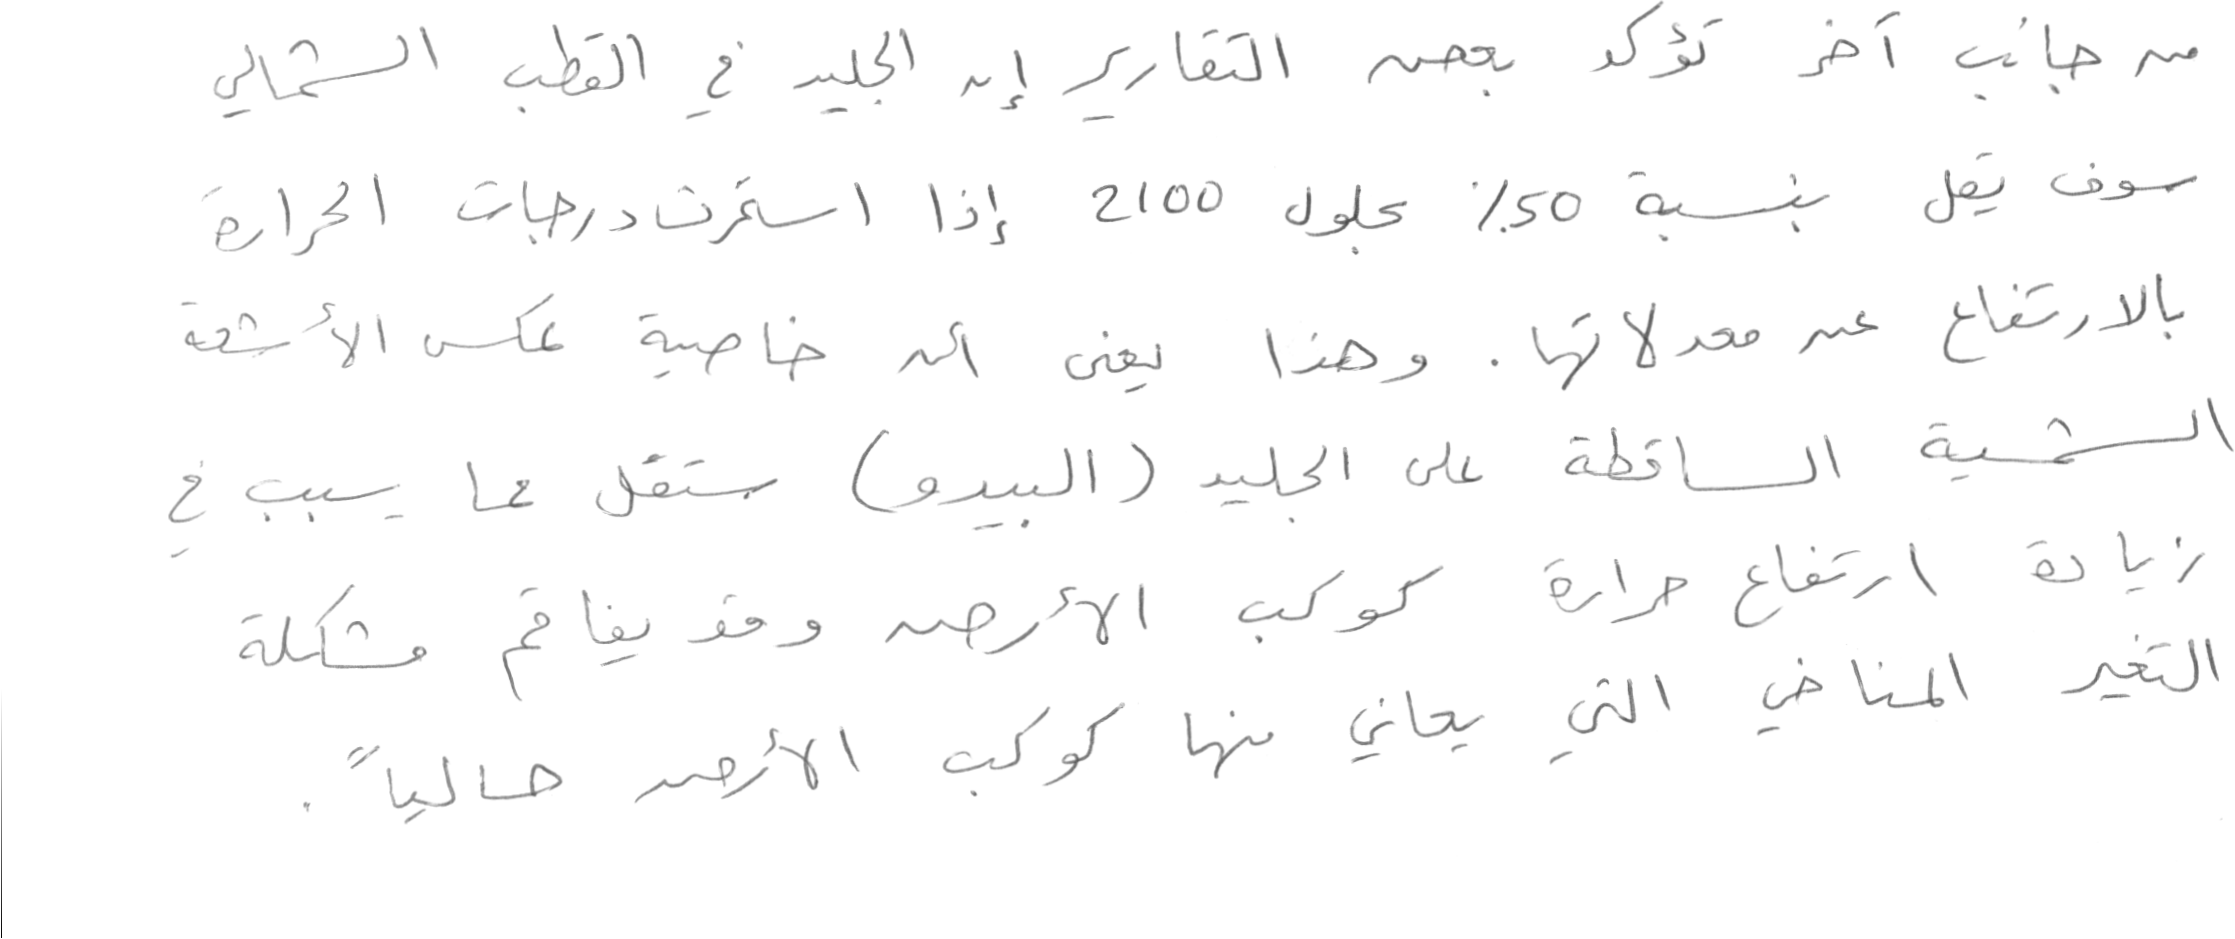 من جانب آخر تؤكد بعض التقارير إن الجليد في القطب الشمالي
سوف يقل بنسبة 50٪ بحلول 2100 إذا استمرت درجات الحرارة
بالارتفاع عن معدلاتها. وهذا يعني أن خاصية عكس الأشعة
الشمسية الساقطة على الجليد (البيدو) ستقل مما يسبب في
زيادة ارتفاع حرارة كوكب الأرض وقد يفاقم مشكلة
التغير المناخي التي يعاني منها كوكب الأرض حالياً.